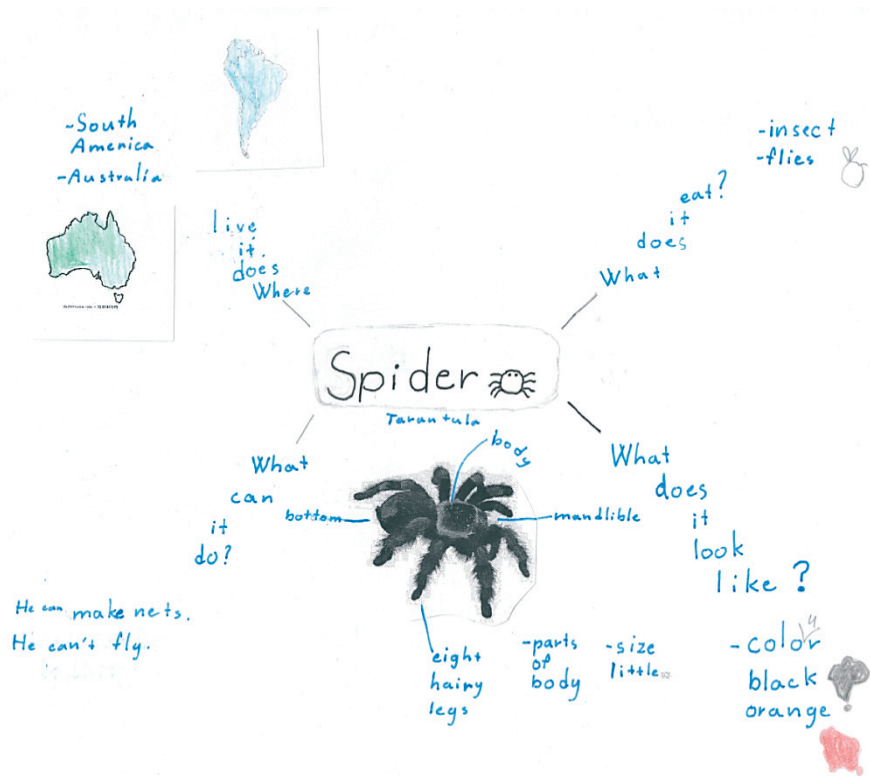 -South
America
-Australia
live
it
does
Where
-insect
-flies
eat?
it
does
What
Spider
Tarantula
body
bottom
mandlible
What
can
it
do?
He can make nets.
He can't fly.
What
does
it
look
like?
eight
hairy
legs
-parts
of
body
-size
little
-color
black
orange